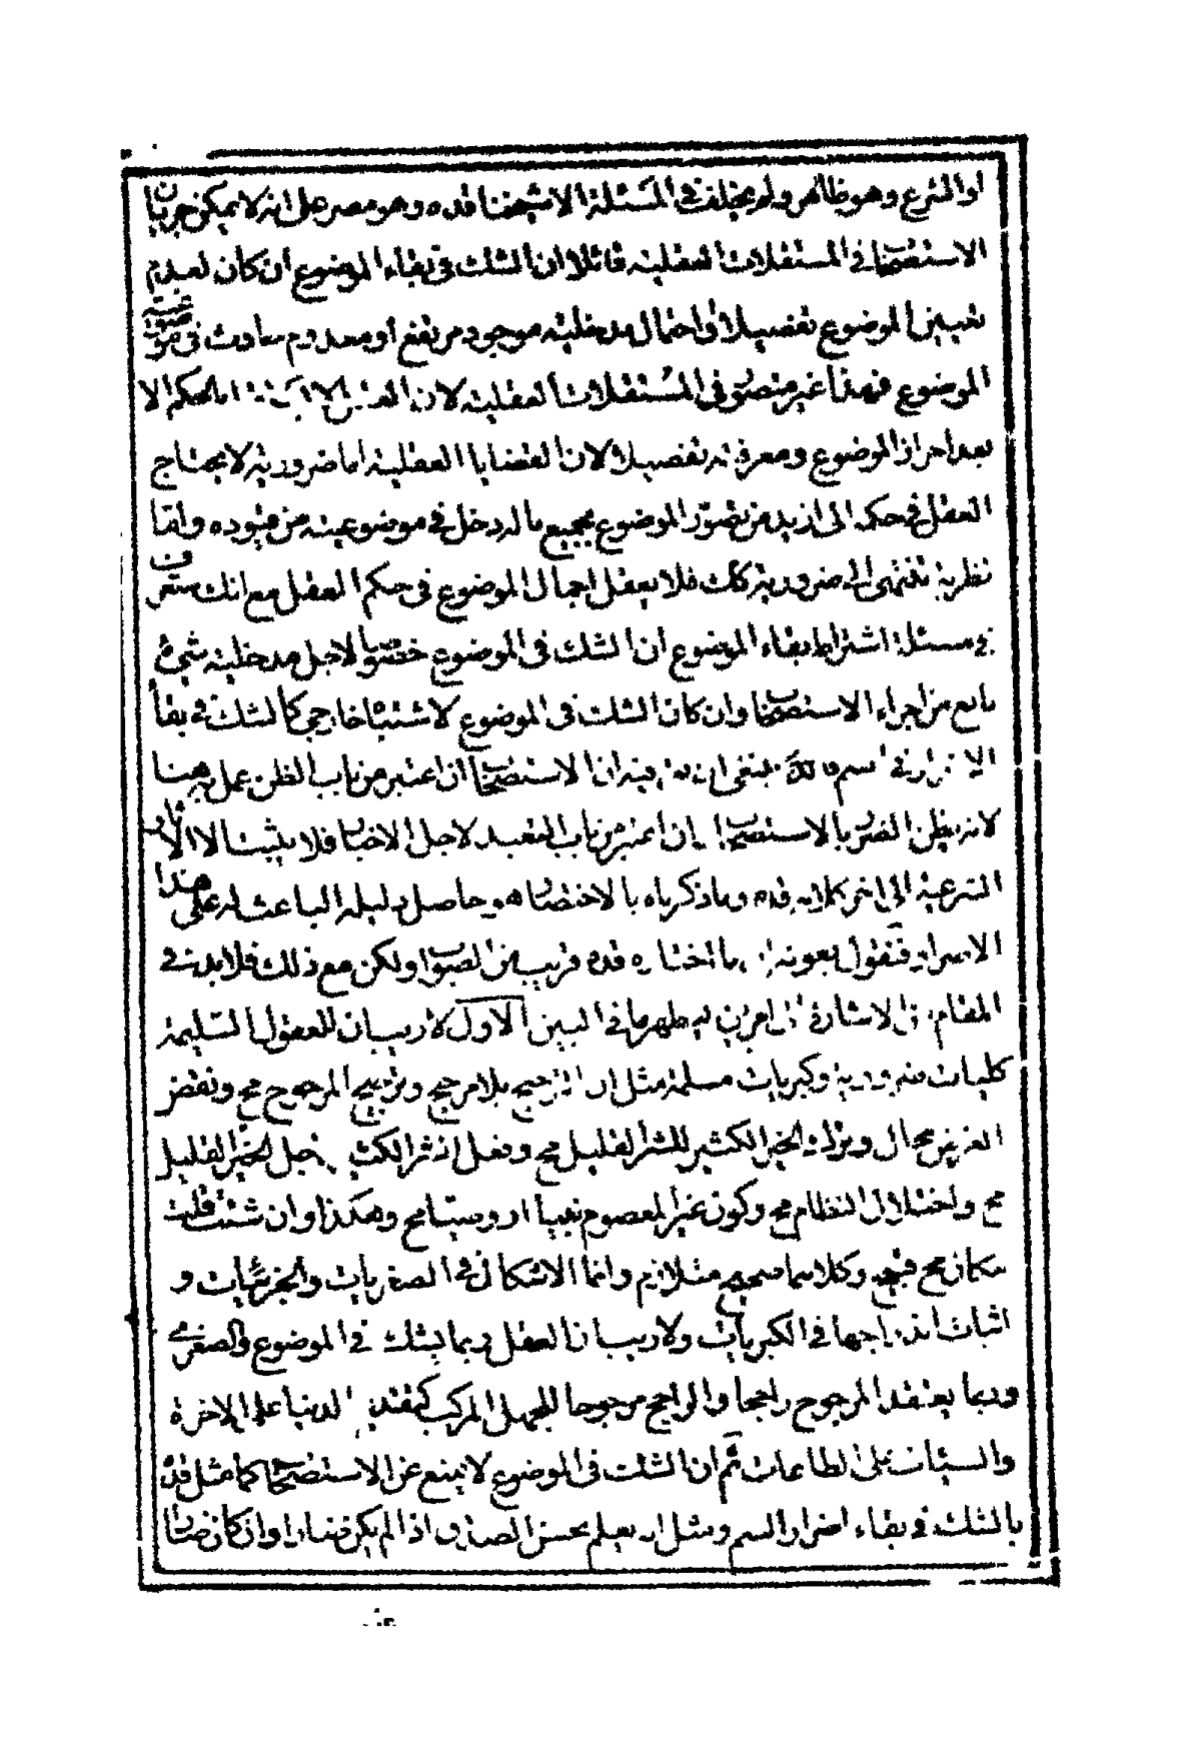 او الشرع وهو ظاهر ولم يخلف فى المسئلة الا شيخنا قده وهو مصر على انه لا يمكن جريان
الاستصحاب فى المستقلات العقلية قائلا ان الشك فى بقاء الموضوع ان كان لعدم
تعيين الموضوع تفصيلا واحتمال مدخلية موجود مرتفع او معدوم حادث فى موضوعية
الموضوع فهذا غير متصور فى المستقلات العقلية لان العقل لا الحكم الا
بعد احراز الموضوع ومعرفته تفصيلا لان القضايا العقلية اما ضرورية لا يحتاج
العقل فى حكمه الى ازيد من تصور الموضوع بجميع ما له دخل فى موضوعيته من قيوده واما
نظرية تنتهى الى ضرورية كك فلا يعقل اجمال الموضوع فى حكم العقل مع انك ستعرف
فى مسئلة اشتراط بقاء الموضوع ان الشك فى الموضوع خصوصا لاجل مدخلية شىء
مانع من اجراء الاستصحاب وان كان الشك فى الموضوع لاشتباه خارجى كالشك فى بقاء
الاضرار فى السم فذلك ينبغى ان الاستصحاب ان اعتبر من باب الظن عمل به هنا
لانه يظن الضرر بالاستصحاب وان اعتبر من باب التعبد لاجل الاخبار فلا يثبت الا الاثار
الشرعية الى اخر كلامه قده وما ذكرناه بالاختصار هو حاصل دليله الباعث له على هذا
الاصرار فنقول بعونه ما اختاره قده قريب من الصواب ولكن مع ذلك فلا بد فى
المقام من الاشارة الى امرين ليظهر ما فى البين الاول لا ريب ان للعقول السليمة
كليات ضرورية وكبريات مسلمة مثل ان الترجيح بلا مرجح وترجيح المرجوح مح ونقض
الغرض محال وترك الخير الكثير للشر القليل مح وفعل الشر الكثير لاجل الخير القليل
مح واختلال النظام مح وكون غير المعصوم نبيا او وصيا مح وهكذا وان شئت قلت
مكان مح قبيح وكلاهما صحيح متلازم وانما الاشكال فى الصغريات والجزئيات و
اثبات اندراجها فى الكبريات ولا ريب ان العقل ربما يشك فى الموضوع والصغرى
وربما يعتقد المرجوح راجحا والراجح مرجوحا للجهل المركب كمقدم الدنيا على الاخرة
والسيئات على الطاعات ثم ان الشك فى الموضوع لا يمنع عن الاستصحاب كما مثل قده
بالشك فى بقاء اضرار السم ومثل ان يعلم بحسن الصدق اذا لم يكن ضارا وان كان ضارا